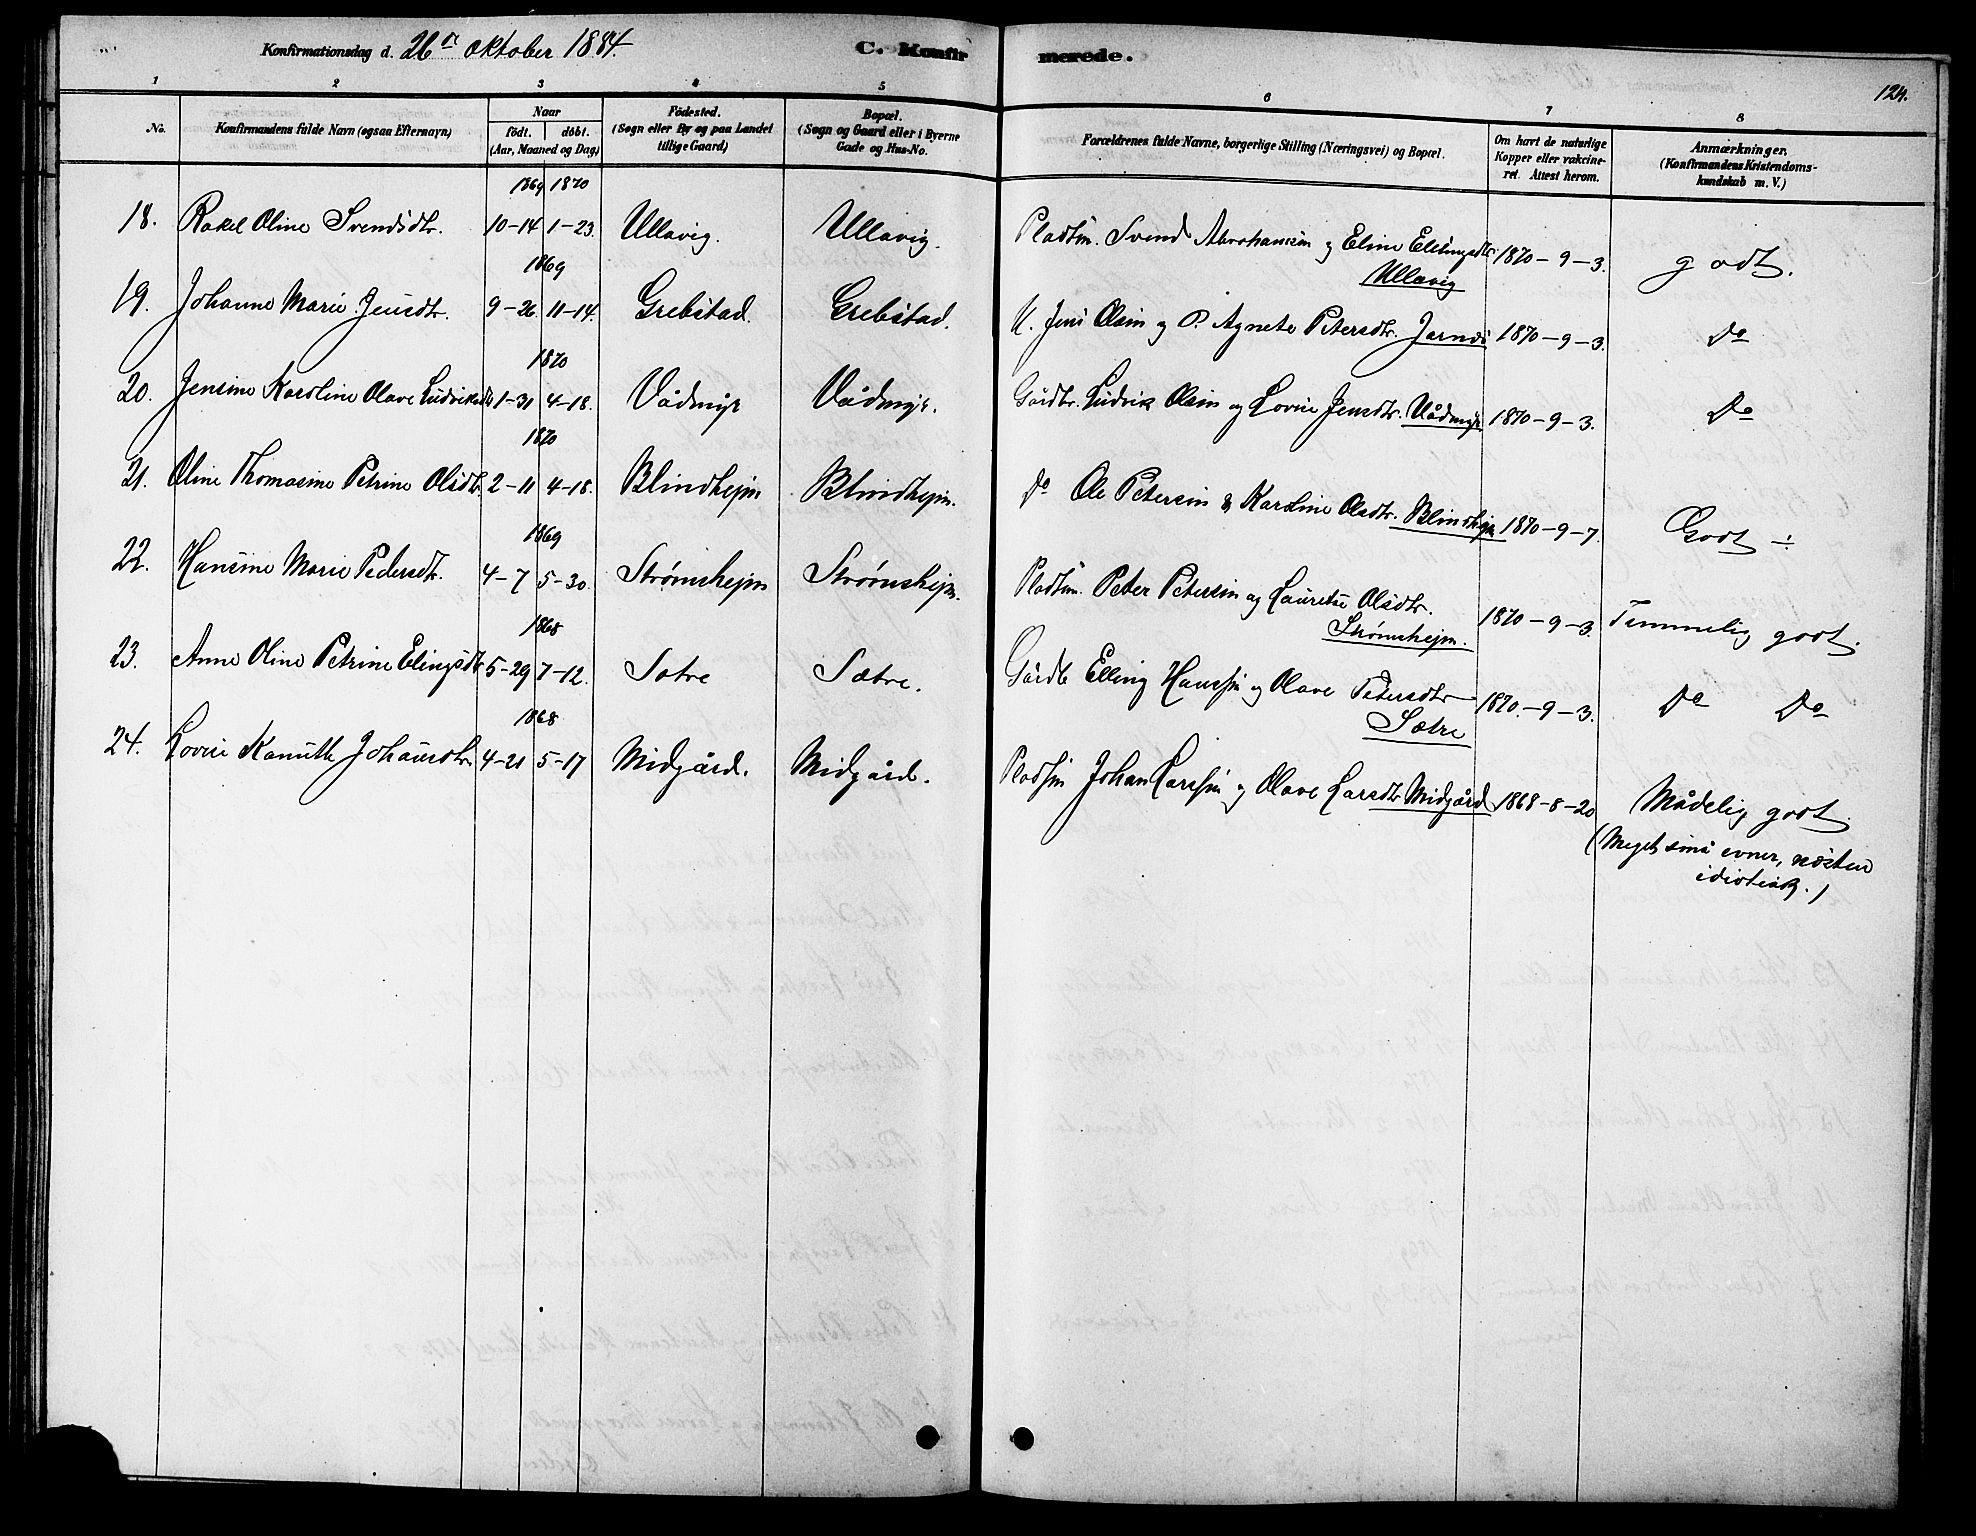 Konfirmationsdag d. 26de Oktober 1884.
C. Konfirmerede.
124.
1 2 3 4 5 6 7 8
No.
Konfirmandens fulde Navn (ogsaa Efternavn)
Naar
født. døbt.
(Aar, Maaned og Dag)
Fødested.
(Sogn eller By og paa Landet
tillige Gaard)
Bopæl.
(Sogn og Gaard eller i Byerne
Gade og Hus-No.
Forældrenes fulde Navne, borgerlige Stilling (Næringsvei) og Bopæl.
Om havt de naturlige
Kopper eller vakcine-
ret. Attest herom.
Anmærkninger.
(Konfirmandens Kristendoms-
kundskab m. V.)
1869 1870
18. Rakel Oline Svendsdtr. 10-14 1-23. Ullavig. Ullavig. Pladsm. Svend Abrahamsen og Eline Ellingsdtr. 1870-9-3. godt.
Ullavig
1869
19. Johanne Marie Jensdtr. 9-26. 11-14. Grebstad. Grebstad. Jens Olsen og P. Agnete Petersdtr. 1870-9-3. Do
1870
20. Jensine Karoline Olave Ludviksdtr 1-31 4-18. Vådmyr Vådmyr. Gårdbr. Ludvik Olsen og Lovise Jensdtr. Vådmyr 1870-9-3. Do
1870
21. Oline Thomasine Petrine Olsdtr. 2-11 4-18. Blindhejm Blindhejm. Do Ole Petersen & Karoline Olsdtr. Blindhejm 1870-9-7. Godt ÷
1869
22. Hansine Marie Pedersdtr. 4-7 5-30. Strømshejm Strømshejm. Pladsm. Peter Petersen og Lauretse Olsdtr. 1870-9-3. Temmelig godt.
Strømshejm.
1868
23. Anne Oline Petrine Elingsdtr 5-29 7-12. Sætre Sætre. Gårdb Elling Hanssen og Olave Petersdtr 1870.-9-3. Do Do
Sætre
1868
24. Lovise Kanutte Johansdtr. 4-21 5-17 Midgård. Midgård. Pladsm Johan Larssen og Olave Larsdtr Midgård 1868-8-20 Mådelig godt.
(Meget små evner, næsten
idiotisk.)